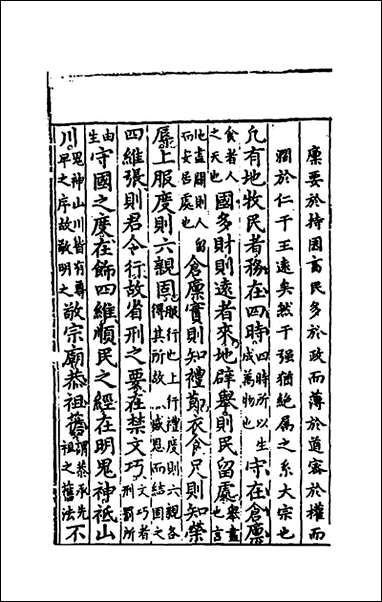 廩要於持國富民多於政而薄於道密於權而
濶於仁于王遠矣然于强猶絶属之系大宗也
凢有地牧民者務在四時四時所以生成萬物也守在倉廪
食者人之天也國多財則遠者來地辟舉則民留處舉盡也言
地盡闢則人留而安居處也倉廪實則知禮節衣食足則知榮
辱上服度則六親固服行也上行禮度則六親各得其所故感恩而結固之
四維張則君令行故省刑之要在禁文巧文巧者刑罰所
由生守國之度在飾四維順民之經在明鬼神祗山
川鬼神山川皆有尊卑之序故敬明之敬宗廟恭祖舊謂恭承先祖之舊法不